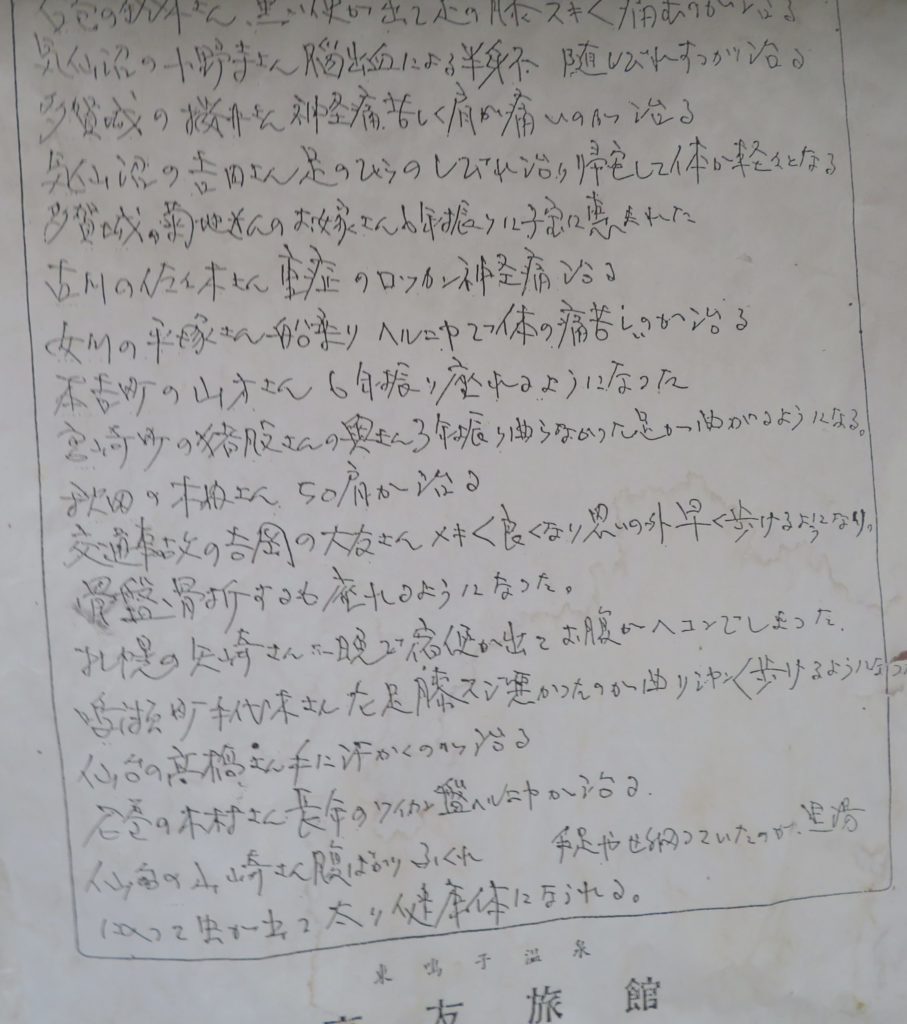 石巻の鈴木さん、黒い便が出て足の膝スキく痛むのが治る
気仙沼の小野寺さん脳出血による半身不随しびれすっかり治る
多賀城の桜井さん神経痛苦しく肩が痛いのが治る
気仙沼の吉田さん足のひらのしびれ治り帰宅して体が軽々となる
多賀城の菊地さんのお嫁さん6年振りに子宝に恵まれた
古川の佐々木さん重症のロッカン神経痛治る
女川の平塚さん船乗りヘルニヤで体の痛苦しいのが治る
本吉町の山才さん6年振り座れるようになった
宮崎町の猪股さんの奥さん3年振り曲らなかった足が曲がるようになる。
秋田の木板さん50肩が治る
交通事故の吉岡の大友さんメキく良くなり思いの外早く歩けるようになり、
骨盤、骨折するも座れるようになった。
札幌の矢崎さん二晩で宿便が出てお腹がヘコンでしまった.
鳴瀬町千代木さん左足膝スジ悪かったのが曲りシャンく歩けるようになった
仙台の高橋さん手に汗かくのが治る
石巻の木村さん長年のツイカン盤ヘルニヤが治る.
仙台の山崎さん腹ばかりふくれ 手足やせ細っていたのが、黒湯
に入って虫が出て太り健康体になられる。
東鳴子温泉
友旅館